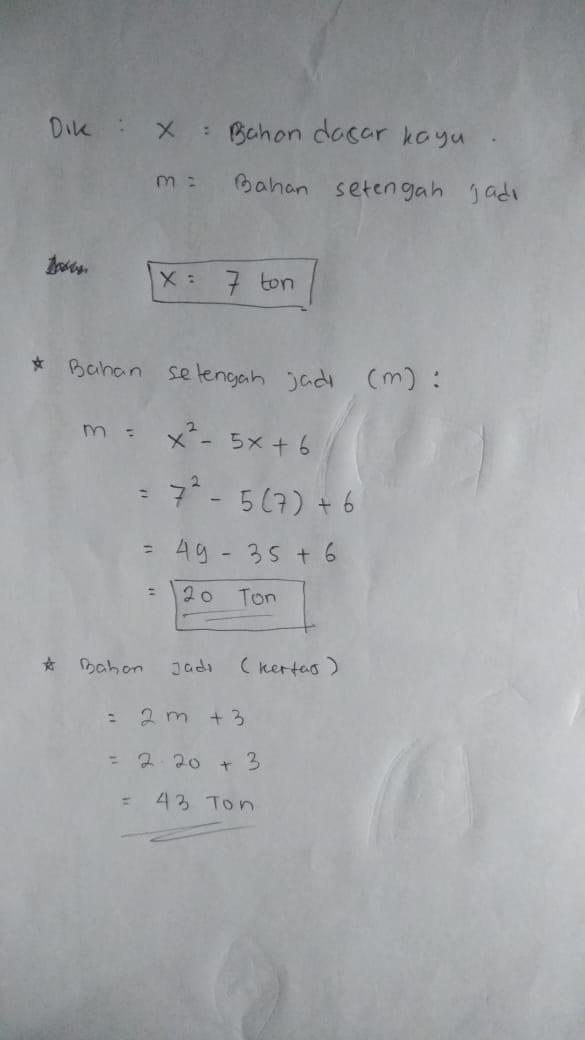 Dik : x : Bahan dasar kayu .
m = Bahan setengah jadi
x = 7 ton
* Bahan setengah jadi (m) :
m = x² - 5x + 6
= 7² - 5(7) + 6
= 49 - 35 + 6
= 20 Ton
* Bahan Jadi (kertas)
= 2m + 3
= 2 . 20 + 3
= 43 Ton